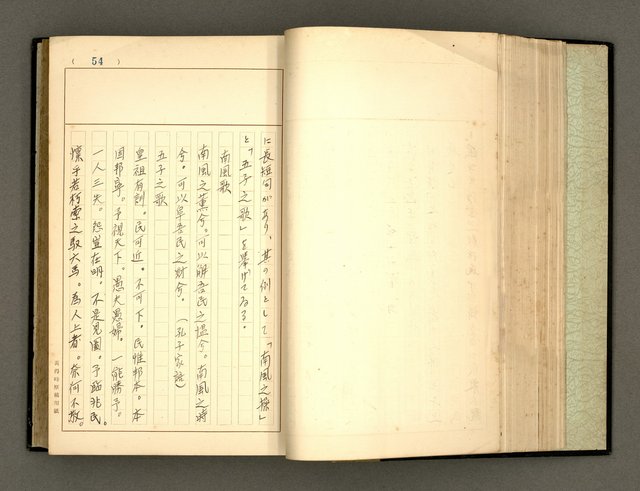 ( 54 )
に長短句があり、其の例として「南風之操」
と「五子之歌」を挙げてゐる。
南風歌
南風之薫兮。可以解吾民之慍兮。南風之時
兮。可以阜吾民之財兮。(孔子家語)
五子之歌
皇祖有訓。民可近。不可下。民惟邦本。本
固邦寧。予視天下。愚夫愚婦。一能勝予。
一人三失。怨豈在明。不見是圖。予臨兆民。
懍乎若朽索之馭六馬。為人上者。奈何不敬。
黃得時原稿用紙